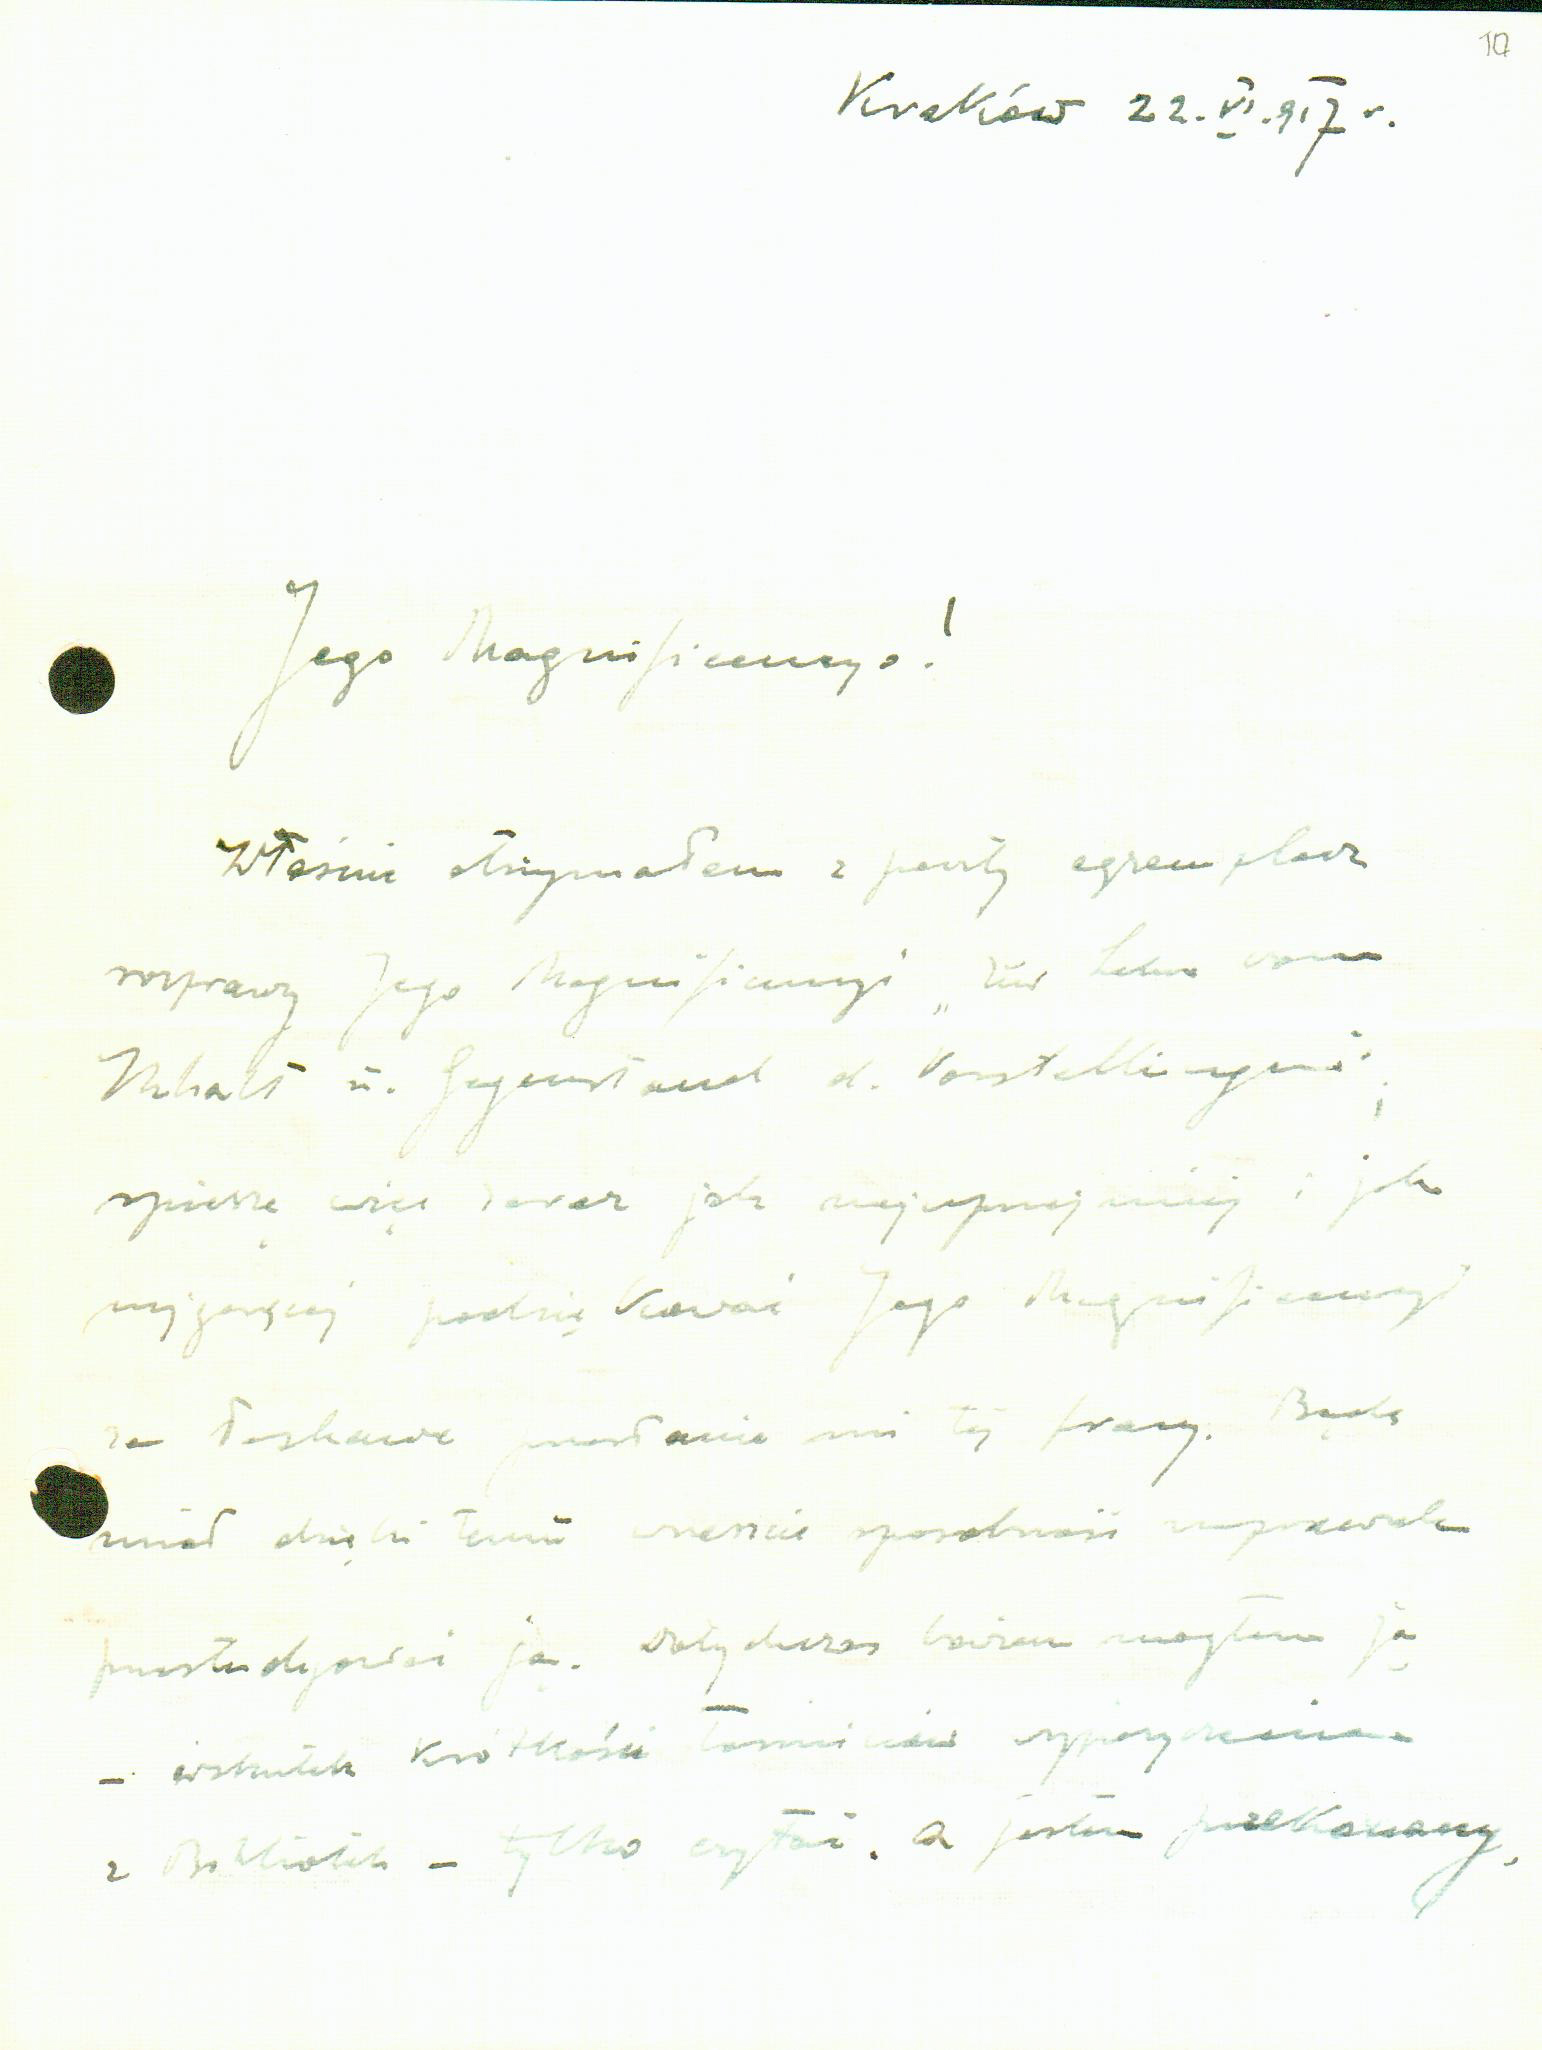 10
Kraków 22.VI.917 r.
Jego Magnificencyo!
Właśnie otrzymałem z poczty egzemplarz
rozprawy Jego Magnificencyi „Zur Lehre vom
Inhalt u. Gegenstand d. Vorstellungen";
spieszę więc zaraz jak najuprzejmiej i jak
najgoręcej podziękować Jego Magnificencyi
za łaskawe przesłanie mi tej pracy. Będę
miał dzięki temu wreszcie sposobność naprawdę
przestudyować ją. Dotychczas bowiem mogłem ją
– wskutek krótkości terminów wypożyczenia
z Bibliotek – tylko czytać, a jestem przekonany,